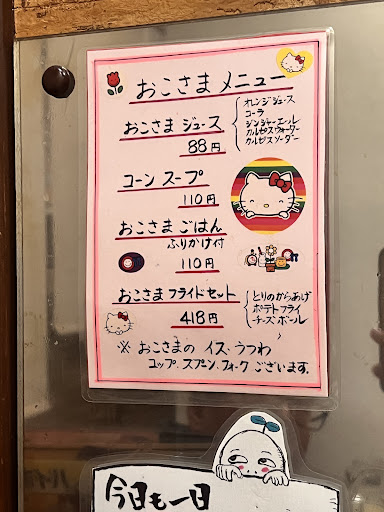 おこさま メニュー
おこさま ジュース
88円
オレンジジュース
コーラ
ジンジャーエール
カルピスウォーター
カルピスソーダー
コーン スープ
110円
おこさま ごはん
ふりかけ付
110円
おこさま フライドセット
418円
とりのからあげ
ポテトフライ
チーズボール
※ おこさまの イス、うつわ
コップ、スプーン、フォーク ございます。
今日も一日